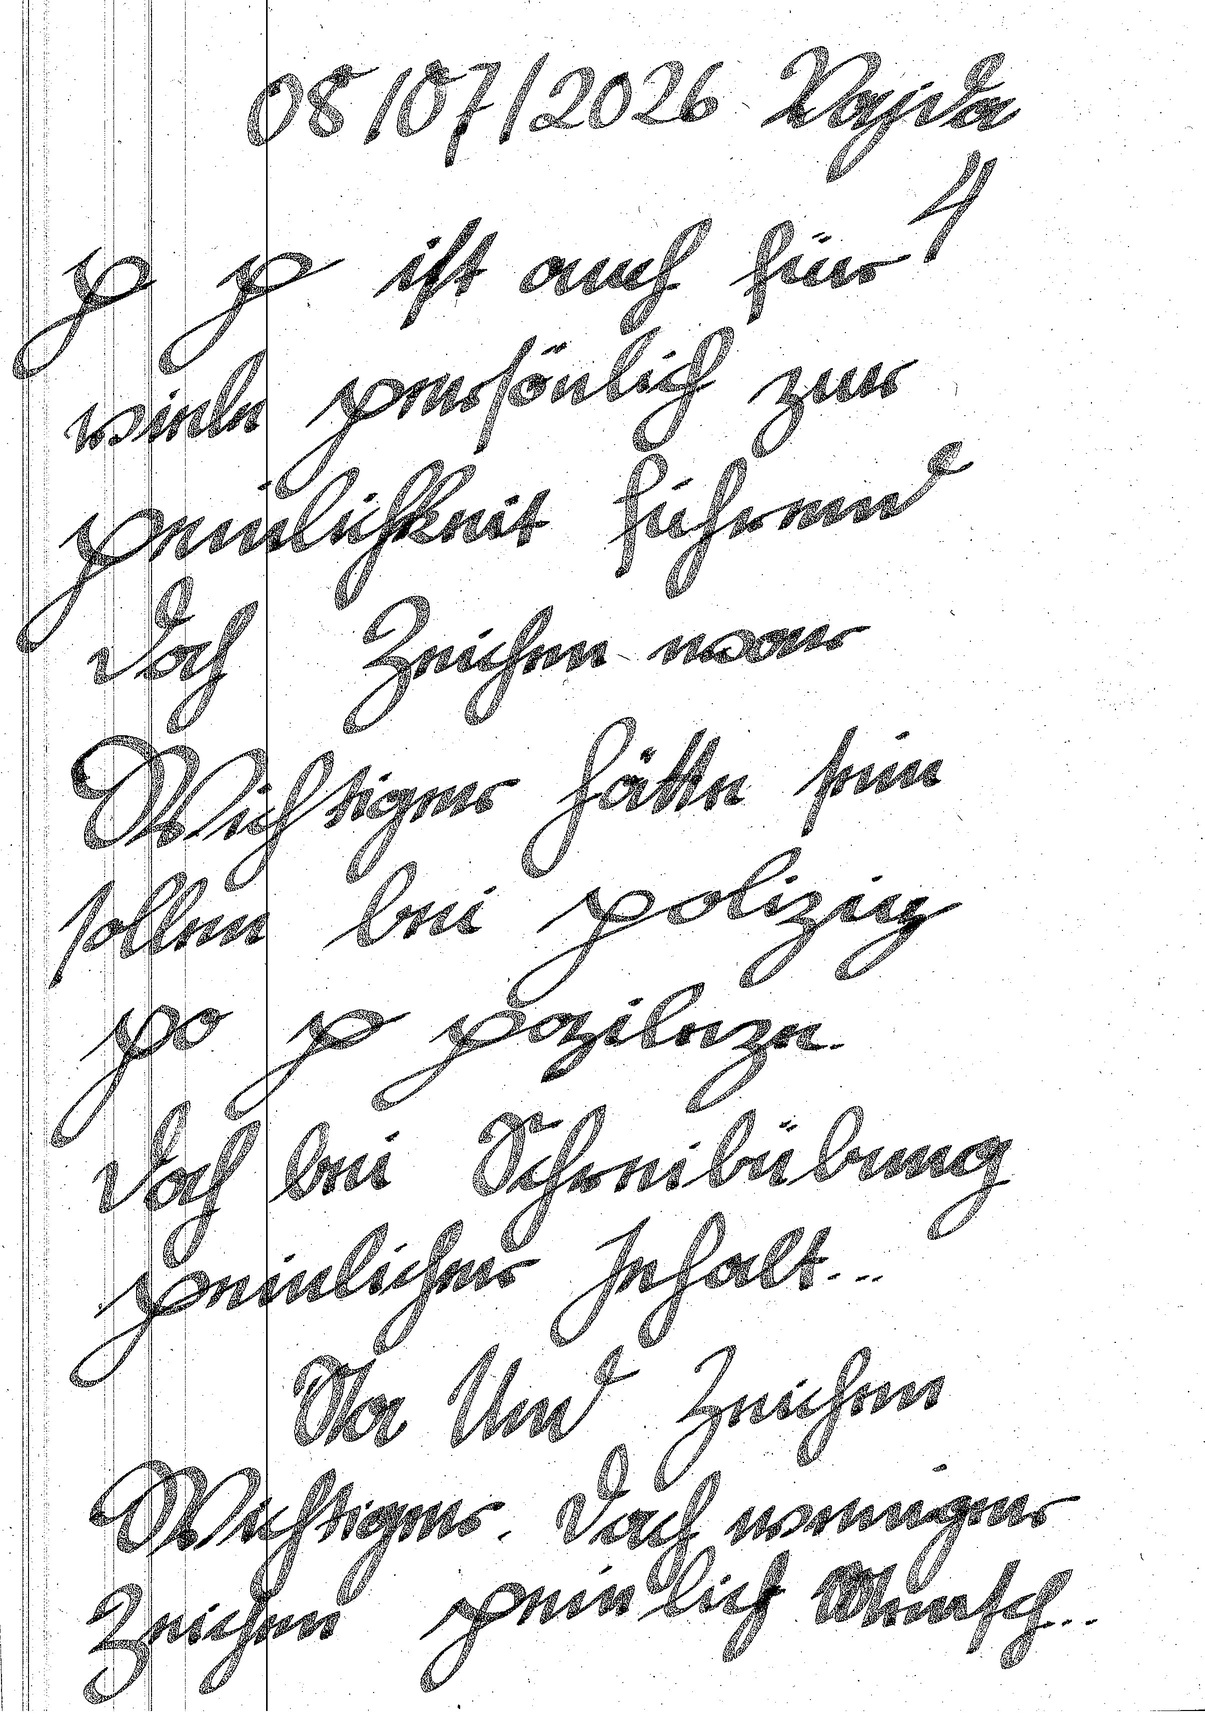 08/07/2026 Vajda
4
p p ist auch für
viele persönlich zur
peinlichkeit führend
doch Zeichen war
Wichtiger hätte sein
sollen bei polizig
po p pozileze.
doch bei Schreibübung
peinlicher Inhalt...
Da Und Zeichen
Wichtiger. doch weniger
Zeichen peinlich Wunsch...